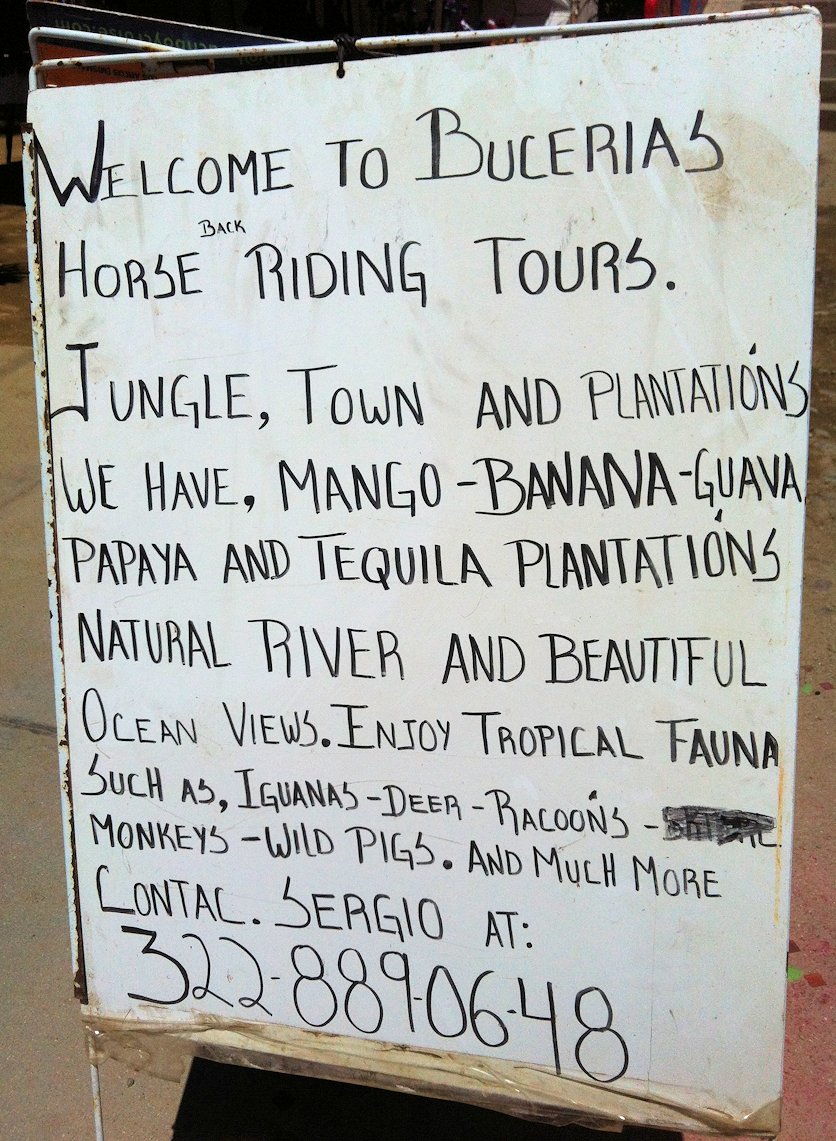 WELCOME TO BUCERIAS
BACK
HORSE RIDING TOURS.
JUNGLE, TOWN AND PLANTATIÓNS
WE HAVE, MANGO-BANANA-GUAVA
PAPAYA AND TEQUILA PLANTATIÓNS
NATURAL RIVER AND BEAUTIFUL
OCEAN VIEWS. ENJOY TROPICAL FAUNA
SUCH AS, IGUANAS-DEER-RACOÓNS-
MONKEYS-WILD PIGS. AND MUCH MORE
CONTAC. SERGIO AT:
322-889-06-48